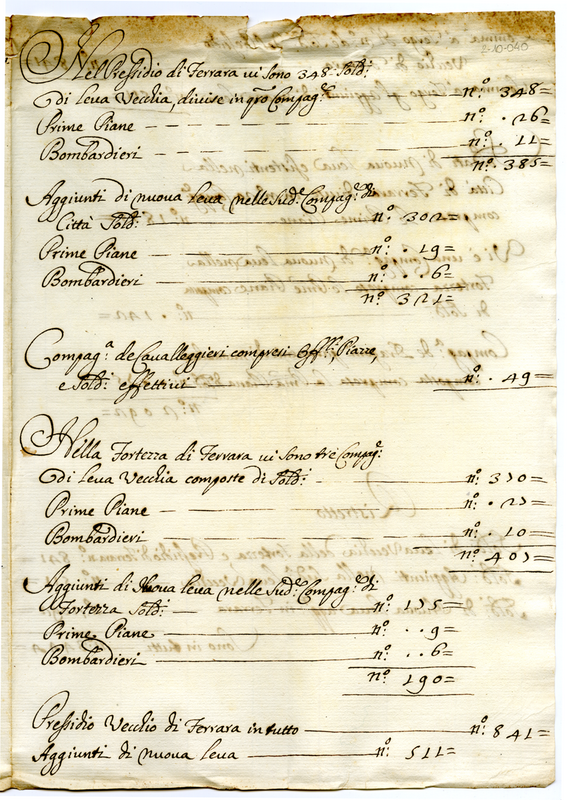 2-10-040
Nel Pressidio di Ferrara vi sono 348 Sold:
di Leva Vecchia, divise in qro Compag.e nº. 348=
Prime Piane nº. 26=
Bombardieri nº. 11=
nº. 385=
Aggiunti di nuova leva nelle Sud.e Compag.e di
Città Sold: nº. 302=
Prime Piane nº. 19=
Bombardieri nº. 6=
nº. 321=
Compag.a de Cavalleggieri compresi Uff.li, Piazze,
e Sold: effettivi nº. 49=
Nella Fortezza di Ferrara vi sono tre Compag.e
di Leva Vecchia composte di Sold: nº. 370=
Prime Piane nº. 27=
Bombardieri nº. 10=
nº. 407=
Aggiunti di Nuova leva nelle Sud.e Compag.e di
Fortezza Sold: nº. 175=
Prime Piane nº. . 9=
Bombardieri nº. . 6=
nº. 190=
Pressidio Vecchio di Ferrara in tutto nº. 841=
Aggiunti di nuova leva nº. 511=